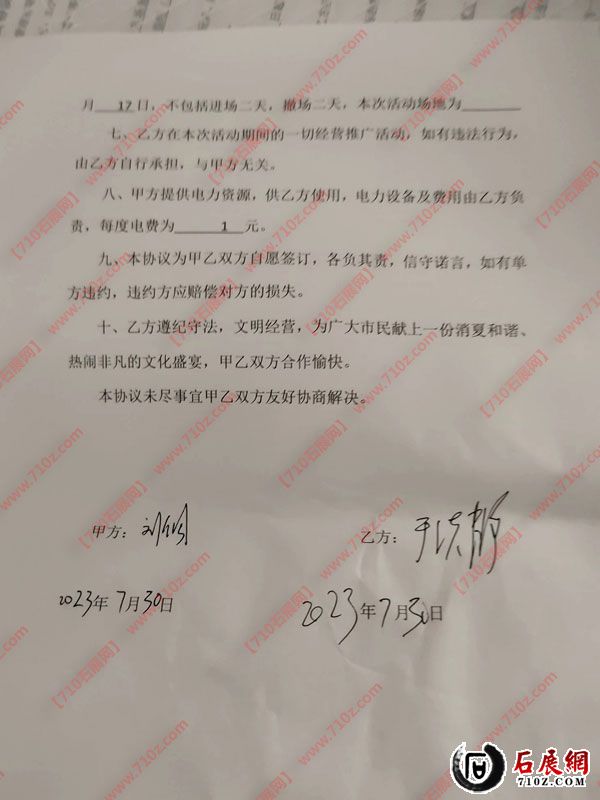 月 17 日，不包括进场二天，撤场二天，本次活动场地为
七、乙方在本次活动期间的一切经营推广活动，如有违法行为，
由乙方自行承担，与甲方无关。
八、甲方提供电力资源，供乙方使用，电力设备及费用由乙方负
责，每度电费为 1 元。
九、本协议为甲乙双方自愿签订，各负其责，信守诺言，如有单
方违约，违约方应赔偿对方的损失。
十、乙方遵纪守法，文明经营，为广大市民献上一份消夏和谐、
热闹非凡的文化盛宴，甲乙双方合作愉快。
本协议未尽事宜甲乙双方友好协商解决。
甲方：
乙方：
2023年7月30日
2023年7月30日
【710石展网】
www.710z.com
石展網
710Z.COM